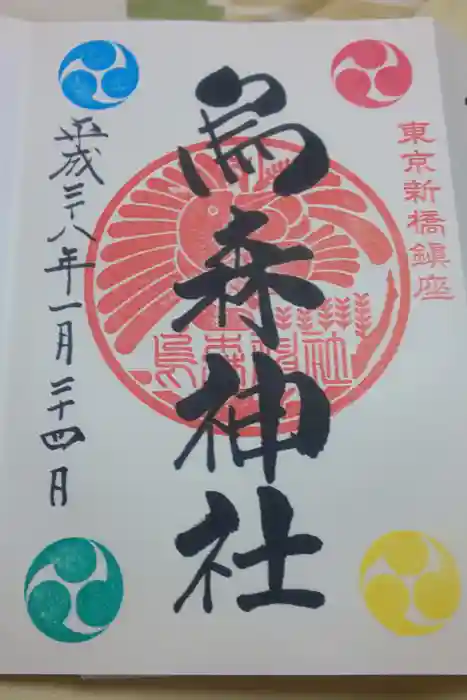 東京新橋鎮座
烏森神社
烏森神社
平成二十八年一月二十四日